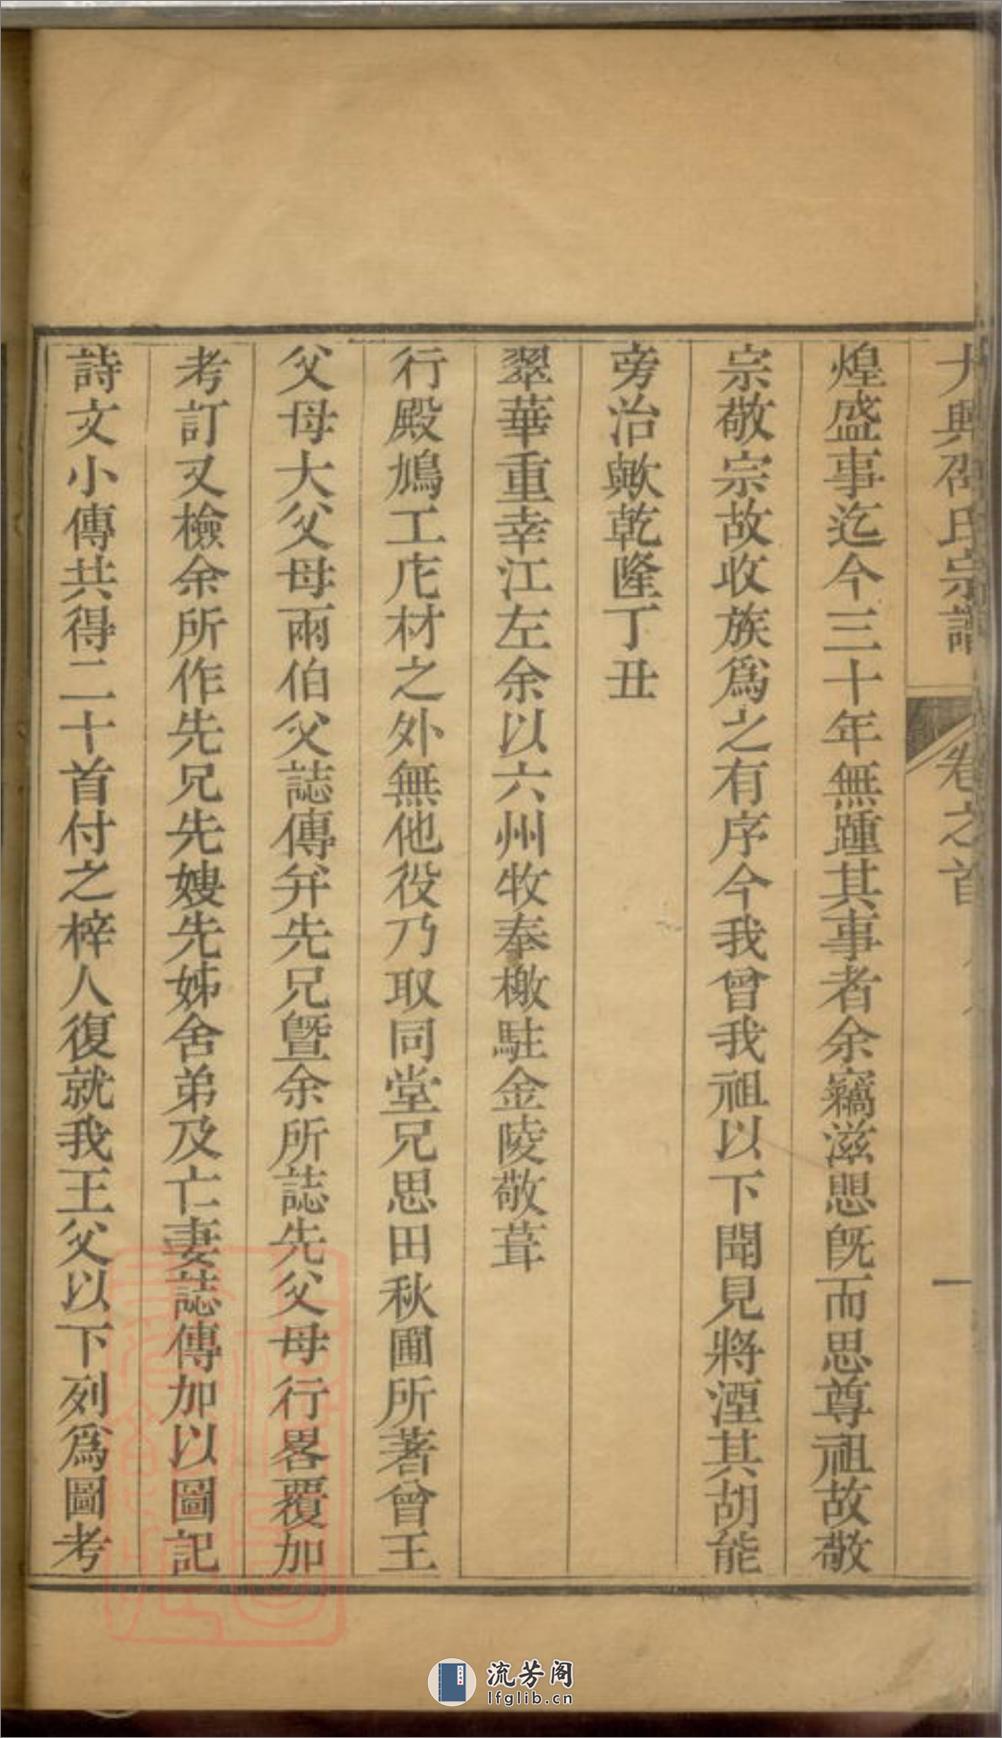 大興邵氏宗譜 卷之首 一
煌盛事迄今三十年無踵其事者余竊滋愳旣而思尊祖故敬
宗敬宗故收族爲之有序今我曾我祖以下聞見將湮其胡能
旁治歟乾隆丁丑
翠華重幸江左余以六州牧奉檄駐金陵敬葺
行殿鳩工庀材之外無他役乃取同堂兄思田秋圃所著曾王
父母大父母兩伯父誌傳弁先兄曁余所誌先父母行畧覆加
考訂又檢余所作先兄先嫂先姊舍弟及亡妻誌傳加以圖記
詩文小傳共得二十首付之梓人復就我王父以下列爲圖考
流芳阁
lfglib.cn